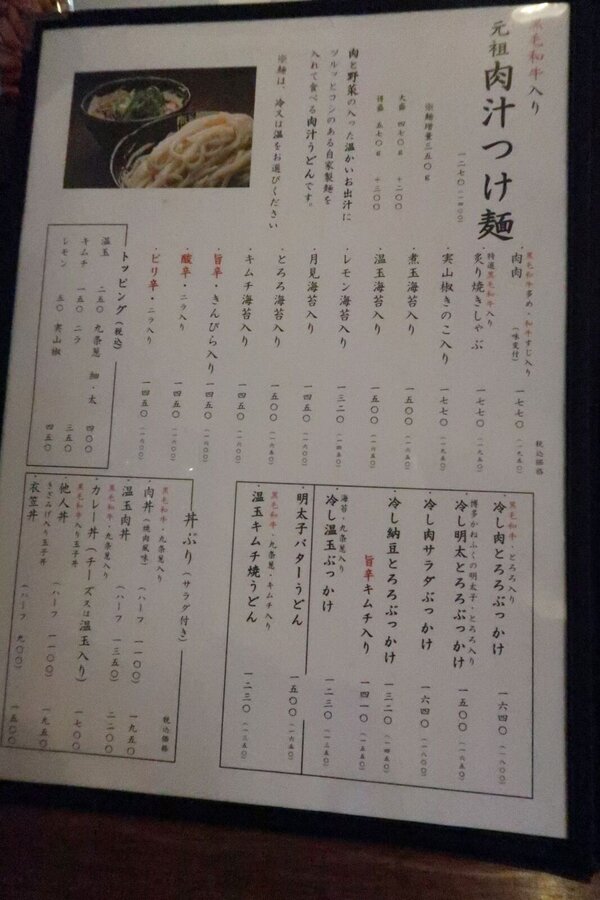 黒毛和牛入り
元祖肉汁つけ麺
一二七〇(一四〇〇)
※麺増量三五〇g
大盛 四七〇g +二〇〇
得盛 五七〇g +三〇〇
肉と野菜の入った温かいお出汁に
ツルッとコシのある自家製麺を
入れて食べる肉汁うどんです。
※麺は、冷又は温をお選びください
税込価格
黒毛和牛多め・和牛すじ入り
・肉肉(味変付) 一七七〇(一九五〇)
特選黒毛和牛入り
・炙り焼きしゃぶ 一七七〇(一九五〇)
・実山椒きのこ入り 一七七〇(一九五〇)
・煮玉海苔入り 一五〇〇(一六五〇)
・温玉海苔入り 一五〇〇(一六五〇)
・レモン海苔入り 一三二〇(一四五〇)
・月見海苔入り 一四五〇(一六〇〇)
・とろろ海苔入り 一五〇〇(一六五〇)
・キムチ海苔入り 一四五〇(一六〇〇)
・旨辛・きんぴら入り 一四五〇(一六〇〇)
・酸辛・ニラ入り 一四五〇(一六〇〇)
・ピリ辛・ニラ入り 一四五〇(一六〇〇)
トッピング(税込)
温玉 二五〇 九条葱 細・太 四〇〇
キムチ 一五〇 ニラ 三五〇
レモン 五〇 実山椒 四五〇
黒毛和牛・とろろ入り
・冷し肉とろろぶっかけ 一六四〇(一八〇〇)
博多かねふくの明太子・とろろ入り
・冷し明太とろろぶっかけ 一五〇〇(一六五〇)
・冷し肉サラダぶっかけ 一六四〇(一八〇〇)
・冷し納豆とろろぶっかけ 一三二〇(一四五〇)
旨辛キムチ入り 一四一〇(一五五〇)
海苔・九条葱入り
・冷し温玉ぶっかけ 一二三〇(一三五〇)
・明太子バターうどん 一五〇〇(一六五〇)
黒毛和牛・九条葱・キムチ入り
・温玉キムチ焼うどん 一二三〇(一三五〇)
丼ぶり(サラダ付き)
税込価格
黒毛和牛・九条葱入り
・肉丼(焼肉風味) (ハーフ 一一〇〇) 一九五〇
黒毛和牛・九条葱入り
・温玉肉丼 (ハーフ 一三五〇) 二二〇〇
・カレー丼(チーズ又は温玉入り) 一七〇〇
黒毛和牛入り玉子丼
・他人丼 (ハーフ 一一〇〇) 一九五〇
きざみあげ入り玉子丼
・衣笠丼 (ハーフ 九〇〇) 一五〇〇